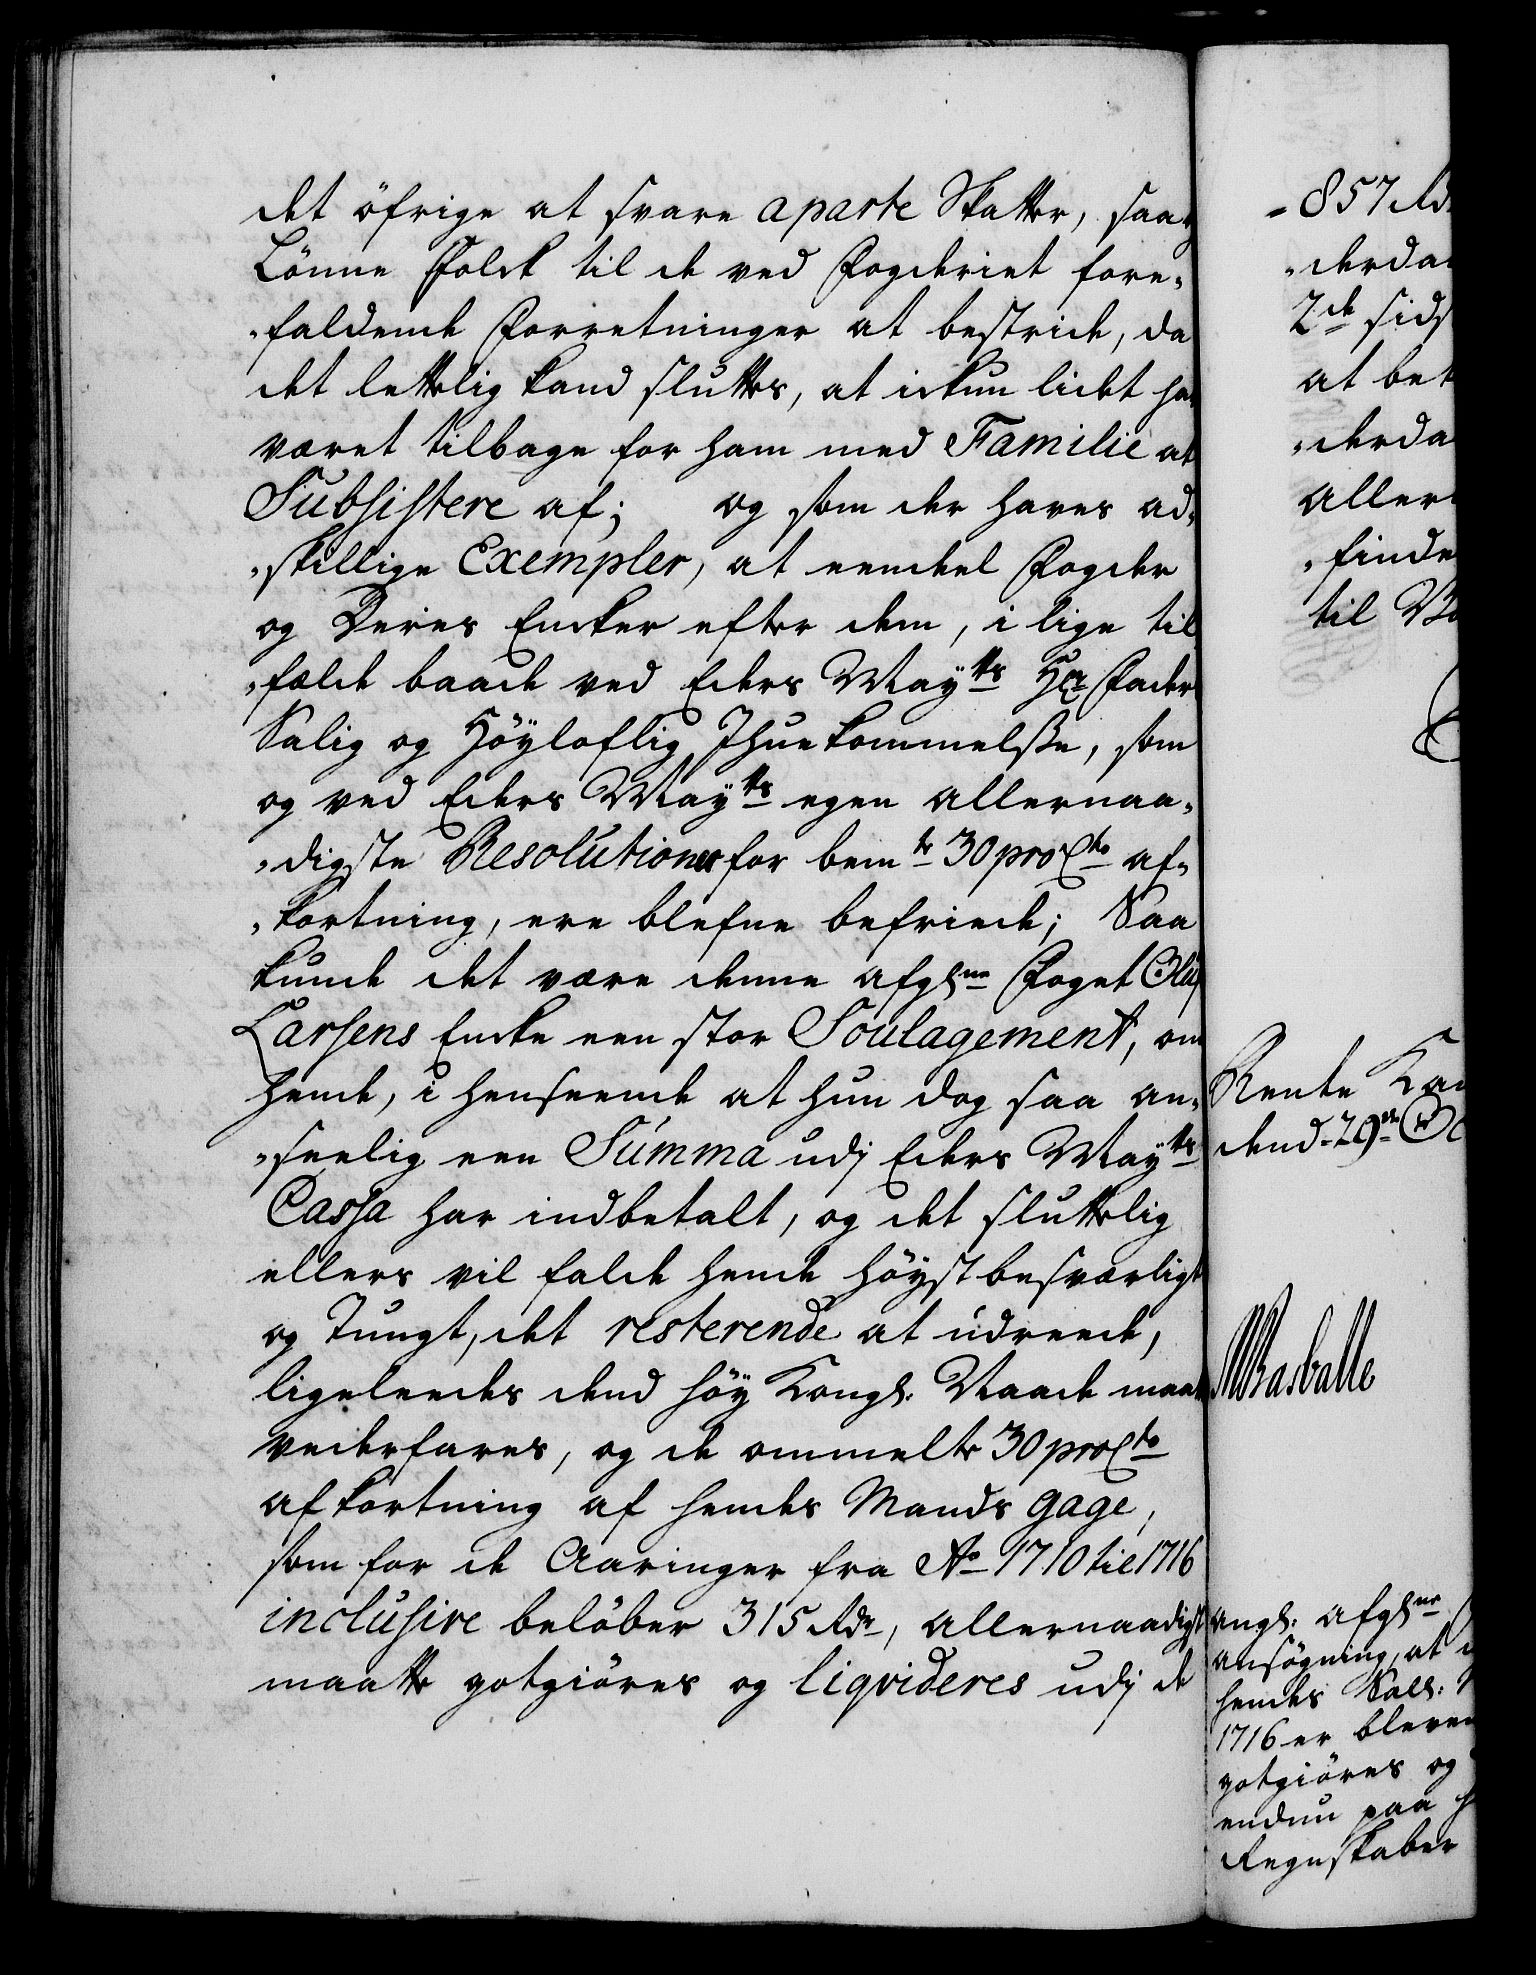 det öfrige at svare aparte Skatter, saa
Lönne Folck til de ved Fogderiet fore-
-faldende Forretninger at bestride, da
det lettelig kand sluttes, at ickun lidet ha
været tilbage for ham med Familie at
Subsistere af; og som der haves ad-
-skillige Exempler, at eendeel Fogder
og Deres Encker efter dem, i lige til
-fælde baade ved Eders Maytts Hr Fader
Salig og Höyloflig Ihuekommelsse, som
og ved Eders Maytts egen allernaa-
-digste Resolutioner for bemte 30 pro Cto af-
-kortning, ere blefne befriede; Saa
kunde det være denne afgangne Foget Oluf
Larsens Encke een stor Soulagement, om
hende, i henseende at hun dog saa an-
-seelig een Summa udj Eders Maytts
Cassa har indbetalt, og det sluttelig
ellers vil falde hende höyst besværligt
og Tungt, det resterende at udreede,
ligeleedes dend höy Kongl: Naade maatte
vederfares, og de ommelte 30 pro Cto
afkortning af hendes Mands gage,
som for de Aaringer fra Ao 1710 til 1716
inclusive belöber 315 Rdr, allernaadigst
maatte gotgiöres og liqvideres udj de
-857 Rd
-derda
2de sids
at bet
-derda
aller
-finde
til
Rente Kam
dend 29de
angl: afgne
ansögning, at
hendes Sall:
1716 er bleven
gotgiöres og
endnu paa
Regnskaber